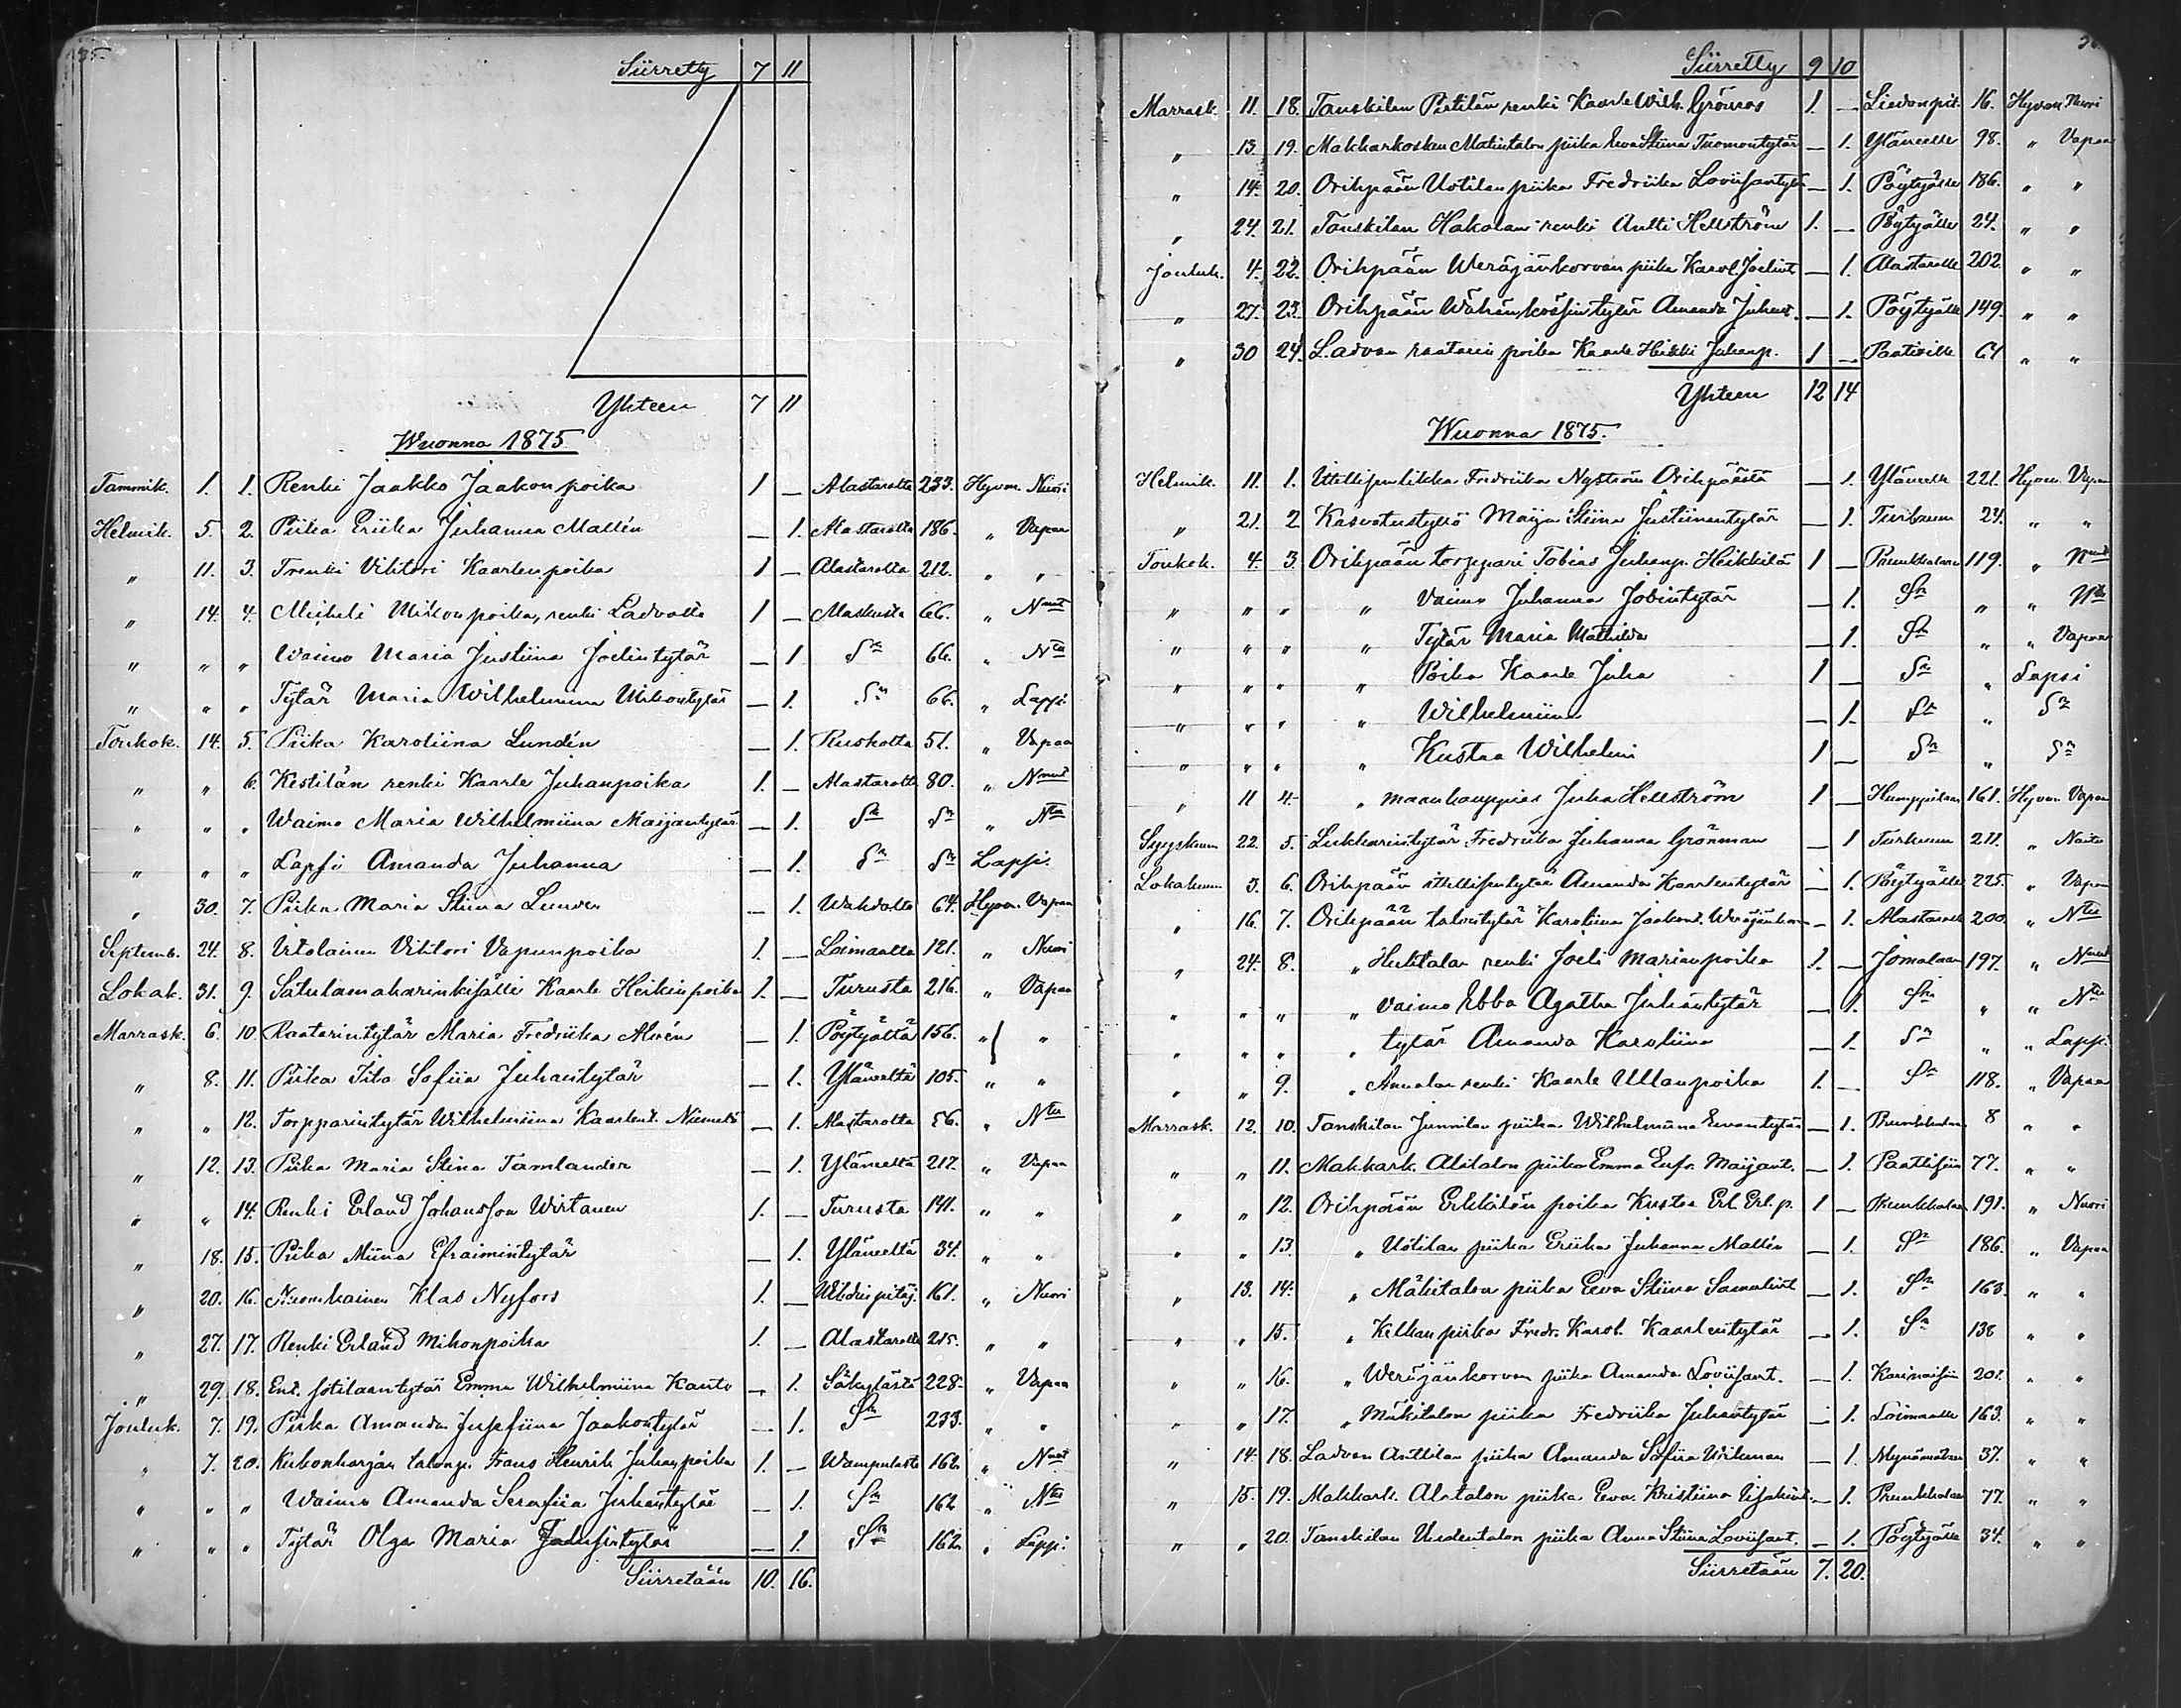 35.
Siirretty 7 11
Yhteen 7 11
Wuonna 1875
Tammik. 1. 1. Renki Jaakko Jaakonpoika 1 — Alastarolta 233. Hyvm. Nuori
Helmik. 5. 2. Piika Eriika Juhanna Mallén — 1. Alastarolta 186. " Vapaa
" 11. 3. Trenki Vihtori Kaarlenpoika 1 — Alastarolta 212. " "
" 14. 4. Mikonpoika, renki Ladvolla 1 — Maskusta 66. " Nnut
" " " Waimo Maria Justiina Joelintytär — 1 Sn 66. " Ntu
" " " Tytär Maria Wilhelmiina Mikontytär — 1. Sn 66. " Lapsi
Toukok. 14. 5. Piika Karoliina Lundén — 1. Ruskolta 51. " Vapaa
" " 6. Kestilän renki Kaarle Juhanpoika 1. — Alastarolta 80. " Nnut
" " " Waimo Maria Wilhelmiina Maijantytär — 1. Sn Sn " Ntu
" " " Lapsi Amanda Juhanna — 1. Sn Sn Lapsi.
" 30. 7. Piika Maria Stiina — 1. Wahdolta 64. Hyvm. Vapaa
Septemb. 24. 8. Vihtori Vapunpoika 1. — Loimaalta 121. " Nuori
Lokak. 31. 9. Satulamakarinkisälli Kaarle Heikinpoika 1. — Turusta 216. " Vapaa
Marrask. 6. 10. Raatarintytär Maria Fredriika Alvén — 1. Pöytyältä 156. " "
" 8. 11. Piika Iita Sofiia Juhantytär — 1. Yläneeltä 105. " "
" " 12. Torpparintytär Wilhelmiina Kaarlent. — 1. Alastarolta 56. " Ntu
" 12. 13. Piika Maria Stina Tamlander — 1. Yläneeltä 217. " Vapaa
" " 14. Renki Erland Johansson Wirtanen 1. — Turusta 141. " "
" 18. 15. Piika Miina Efraimintytär — 1. Yläneeltä 34. " "
" 20. 16. Klas Nyfors 1. — 161. " Nuori
" 27. 17. Renki Erland Mikonpoika 1. — Alastarolta 215. " "
" 29. 18. Ent. sotilaantytär Emma Wilhelmiina — 1. Säkylästä 228. " Vapaa
Jouluk. 7. 19. Piika Amanda Josefiina Jaakontytär — 1. Sn 233. " "
" 7. 20. talonp. Frans Henrik Juhanpoika 1. — Wampulasta 162. " Nnut
" " " Waimo Amanda Serafiia Juhantytär — 1. Sn 162 " Ntu
" " " Tytär Olga Maria — 1. Sn 162. " Lapsi
Siirretään 10. 16.
Siirretty 9 10
Marrask. 11. 18. Tanskilan Pietilän renki Kaarle Wilh. Grönroos 1. — Liedonpit. 16. Hyvm. Nuori
" 13. 19. Makkarkosken Matintalon piika Eeva Stiina Tuomontytär — 1. Yläneelle 98. " Vapaa
" 14. 20. Orihpään Uotilan piika Fredriika — 1. Pöytyälle 186. " "
" 24. 21. Tanskilan Hakalan renki Antti Hellström 1. — Pöytyälle 24. " "
Jouluk. 4. 22. Orihpään Weräjänkorvan piika Karol. Joelint — 1. Alastarolle 202. " "
" 27. 23. Orihpään Amanda Juhant. — 1. Pöytyälle 149. " "
" 30 24. Ladvon raatarin poika Kaarle Heikki Juhanp. 1 — 61 " "
Yhteen 12 14
Wuonna 1875.
Helmik. 11. 1. Itsellisenlikka Fredriika Nyström Orihpäästä — 1. Yläneelle 221. Hyvm. Vapaa
" 21. 2 Kasvatustyttö Maija Stiina Justiinantytär — 1. Turkuun 24. " "
Toukok. 4. 3. Orihpään torppari Tobias Juhanp. Heikkilä 1 — Prunkkalaan 119. " Nnut
" " " " Vaimo Juhanna — 1. Sn " " Ntu
" " " " Tytär Maria Mathilda — 1. Sn " " Vapaa
" " " " Poika Kaarle Juha 1 — Sn " Lapsi
" " " " Wilhelmiina — 1. Sn " Sn
" " " " Kustaa Wilhelmi 1 — Sn " Sn
" 11 4. " maankauppias Juha Hellström 1 — Humppilaan 161. Hyvm. Vapaa
Syyskuun 22. 5. Lukkarintytär Fredriika Juhanna Grönman — 1 Turkuun 211. " Naitu
Lokakuun 3. 6. Orihpään itsellisentytär Amanda Kaarlentytär — 1. Pöytyälle 225. " Vapaa
" 16. 7. Orihpään talontytär Karoliina Jaakont. — 1. Alastarolle 200. " Ntu
" 24. 8. " Huhtalan renki Joeli Marianpoika 1. — Jomalaan 197. " Nnut
" " " " Vaimo Ebba Agatha Juhantytär — 1. Sn " " Ntu
" " " " tytär Amanda Karoliina — 1. Sn " " Lapsi
" " 9. " Annalan renki Kaarle Ullanpoika 1. — Sn 118. " Vapaa
Marrask. 12. 10. Tanskilan Junnilan piika Wilhelmiina Eevantytär — 1. Prunkkalaan 8 " "
" " 11. Makkark. Alitalon piika Emma Eufr. Maijant. — 1. 77. " "
" " 12. Orihpään Erkkilän poika Kustaa Erl. Erl. p. 1 — Prunkkalaan 191. " Nuori
" " 13. " Uotilan piika Eriika Juhanna Mallén — 1. Sn 186. " Vapaa
" 13. 14. " Mäkitalon piika Eeva Stiina Samulint — 1. Sn 163. " "
" " 15. " piika Fredr. Karol. Kaarlentytär — 1. Sn 138 " "
" " 16. " Weräjänkorvan piika Amanda — 1. 201. " "
" " 17. " Mäkitalon piika Fredriika Juhantytär — 1. Loimaalle 163. " "
" 14. 18. Ladvon Anttilan piika Amanda Sofiia — 1. Mynämäkeen 37. " "
" 15. 19. Makkark. Alatalon piika Eeva Kristiina — 1. Prunkkalaan 77. " "
" " 20. Tanskilan Uudentalon piika Anna Stiina — 1. Pöytyälle 34. " "
Siirretään 7. 20.